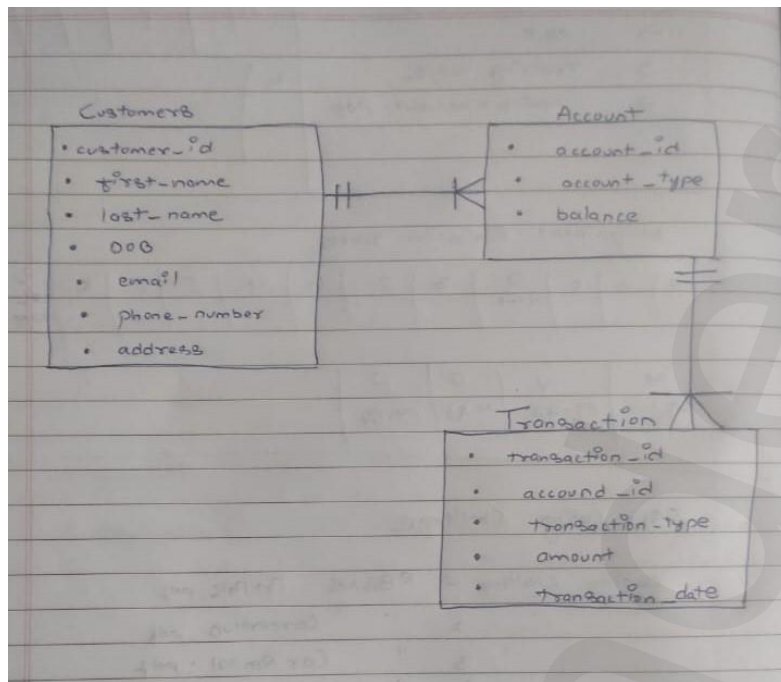 Customers
• customer_id
• first-name
• last-name
• DOB
• email
• phone-number
• address
Account
• account_id
• account_type
• balance
Transaction
• transaction_id
• accound_id
• transaction-type
• amount
• transaction_date